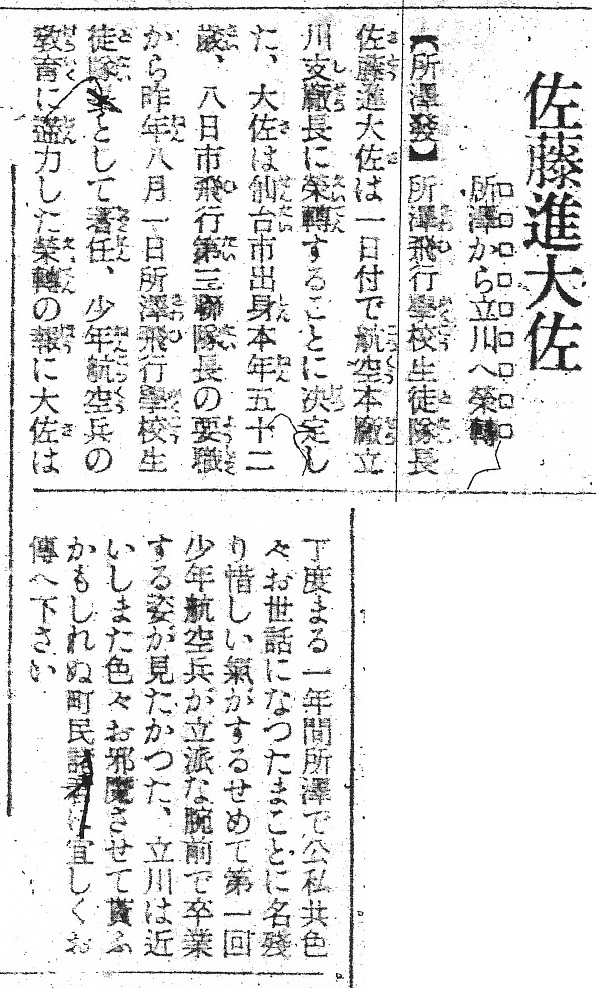 佐藤進大佐
所澤から立川へ榮轉
【所澤發】所澤飛行學校生徒隊長
佐藤進大佐は一日付で航空本廠立
川支廠長に榮轉することに決定し
た、大佐は仙台市出身本年五十二
歳、八日市飛行第三聯隊長の要職
から昨年八月一日所澤飛行學校生
徒隊長として著任、少年航空兵の
敎育に盡力した榮轉の報に大佐は
丁度まる一年間所澤で公私共色
々お世話になつたまことに名殘
り惜しい氣がするせめて第一回
少年航空兵が立派な腕前で卒業
する姿が見たかつた、立川は近
いしまた色々お邪魔させて貰ふ
かもしれぬ町民諸君に宜しくお
傳へ下さい